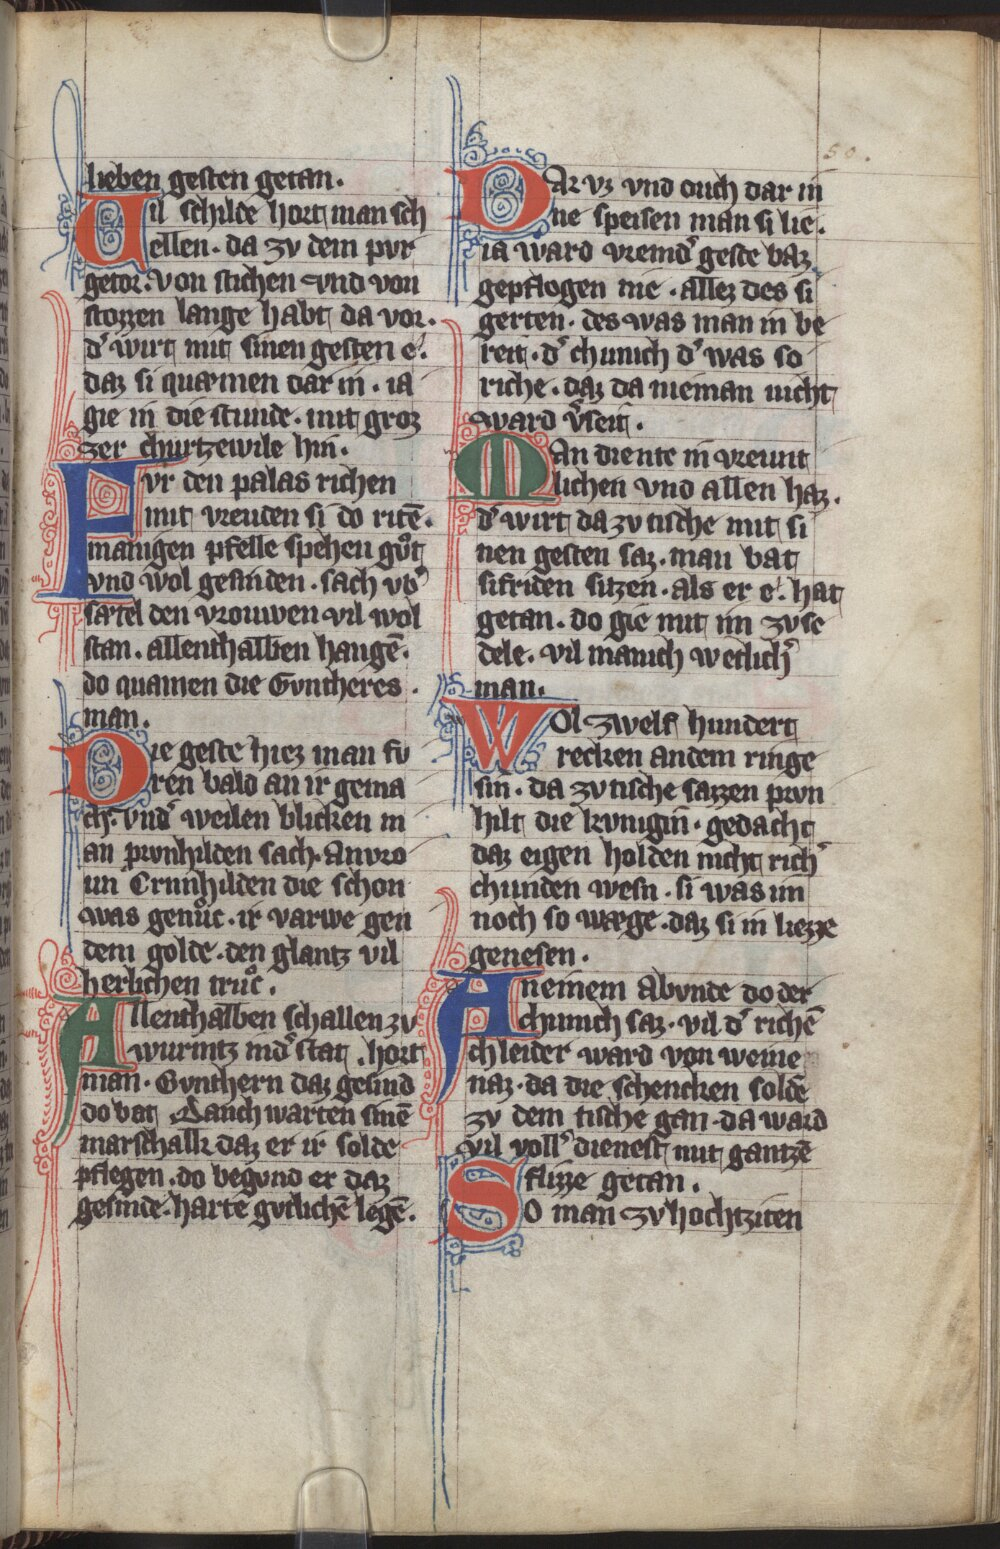 lieben gesten getan.
Vil schilde hort man sch
ellen. da zv dem pvr
getor. von stichen vnd von
stozzen lange habt da vor.
d' wirt mit sinen gesten e.
daz si quæmen dar in. ia
gie in die stunde. mit groz
zer churtzewile hin.
Fvr den palas richen
mit vreuden si do ritē.
manigen pfelle spehen gůt
vnd wol gesniden. sach vb'
sætel den vrouwen vil wol
stan. allenthalben hangē.
do quamen die Gvntheres
man.
Die geste hiez man fv
ren bald an ir gema
ch. vnd' weilen blicken m
an prvnhilden sach. an vro
un Crimhilden die schon
was genůc. ir varwe gen
dem golde. den glantz vil
herlichen trůc.
Allenthalben schallen zv
wurmtz in d' stat. hort
man. Gvnthern daz gesind
do bat Danchwarten sinē
marschalk daz er ir solde
pflegen. do begvnd er daz
gesinde. harte gvtlichē legē.
50.
Dar vz vnd ouch dar in
ne speisen man si lie.
ia ward vremd' geste baz
gepflogen nie. allez des si
gerten. des was man in be
reit. d' chunich d' was so
riche. daz da nieman nicht
ward v'seit.
Man diente in vreunt
lichen vnd allen haz.
d' wirt da zv tische mit si
nen gesten saz. man bat
sifriden sitzen. als er e. hat
getan. do gie mit im zv se
dele. vil manich wetlich'
man.
Wol zwelf hundert
recken an dem ringe
sin. da zv tische sazzen prvn
hilt die kvnigiñ. gedacht
daz eigen holden nicht rich'
chunden wesn. si was im
noch so wæge. daz si in liezze
genesen.
An einem abvnde do der
chunich saz. vil d' richē
chleider ward von weine
naz. da die schencken soldē
zv dem tische gan. da ward
vil voll' dienest mit gantzē
flizze getan.
So man zv hochtziten